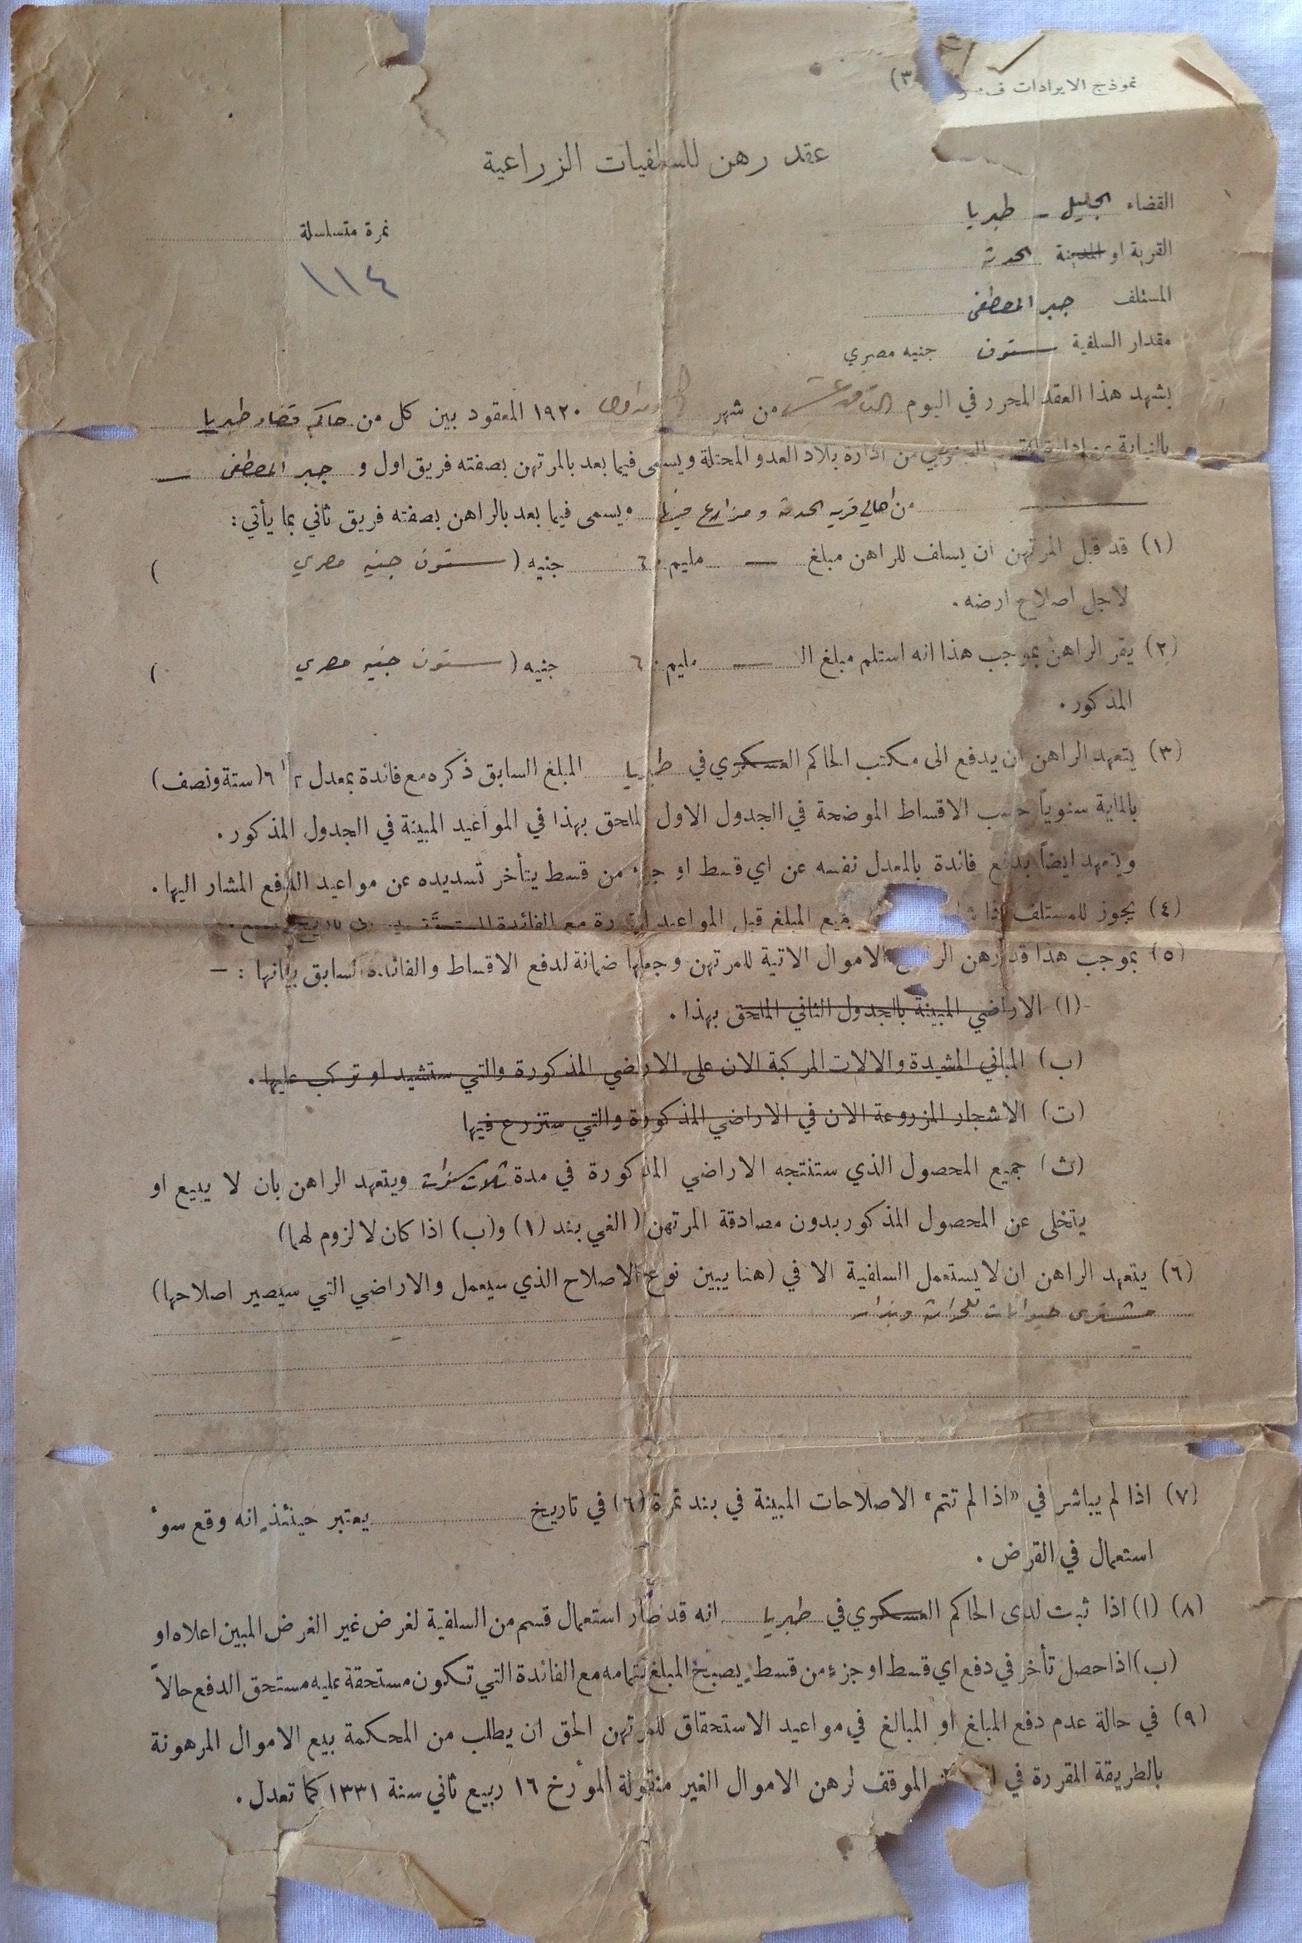 نموذج الايرادات
(٣
عقد رهن للسلفيات الزراعية
القضاء الجليل – طبريا
نمرة متسلسلة
١١٤
القرية او المدينة الحدثه
المستلف جبر المصطفى
مقدار السلفية ستون جنيه مصري
يشهد هذا العقد المحرر في اليوم الثامن عشر من شهر ١٩٢٠ المعقود بين كل من حاكم قضاء طبريا
بالنيابة عن ادارة بلاد العدو المحتلة ويسمى فيما بعد بالمرتهن بصفته فريق اول و جبر المصطفى —
— من اهالي قرية الحدثه و مزارع فيها ويسمى فيما بعد بالراهن بصفته فريق ثاني بما يأتي :
(١) قد قبل المرتهن ان يسلف للراهن مبلغ — مليم ٦٠ جنيه ( ستون جنيه مصري )
لاجل اصلاح ارضه .
(٢) يقر الراهن بموجب هذا انه استلم مبلغ الـ — مليم ٦٠ جنيه ( ستون جنيه مصري )
المذكور .
(٣) يتعهد الراهن ان يدفع الى مكتب الحاكم العسكري في طبريا المبلغ السابق ذكره مع فائدة بمعدل ٦ ١/٢ (ستة ونصف)
بالماية سنوياً حسب الاقساط الموضحة في الجدول الاول الملحق بهذا في المواعيد المبينة في الجدول المذكور .
ويتعهد ايضاً بدفع فائدة بالمعدل نفسه عن اي قسط او جزء من قسط يتأخر تسديده عن مواعيد الدفع المشار اليها .
(٤) يجوز للمستلف اذا المبلغ قبل المواعيد المقررة مع الفائدة
(٥) بموجب هذا قد رهن الراهن الاموال الاتية للمرتهن وجعلها ضمانة لدفع الاقساط والفائدة السابق بيانها : —
(ا) الاراضي المبينة بالجدول الثاني الملحق بهذا .
(ب) المباني المشيدة والالات المركبة الان على الاراضي المذكورة والتي ستشيد او تركب عليها .
(ت) الاشجار المزروعة الان في الاراضي المذكورة والتي ستزرع فيها
(ث) جميع المحصول الذي ستنتجه الاراضي المذكورة في مدة ثلاث سنوات ويتعهد الراهن بان لا يبيع او
يتخلى عن المحصول المذكور بدون مصادقة المرتهن ( الغي بند (١) و(ب) اذا كان لا لزوم لهما)
(٦) يتعهد الراهن ان لا يستعمل السلفية الا في (هنا يبين نوع الاصلاح الذي سيعمل والاراضي التي سيصير اصلاحها)
مشترى حيوانات للحراثه وبذار
(٧) اذا لم يباشر في «اذا لم تتم» الاصلاحات المبينة في بند نمرة (٦) في تاريخ يعتبر حينئذٍ انه وقع سوء
استعمال في القرض .
(٨) (ا) اذا ثبت لدى الحاكم العسكري في طبريا انه قد صار استعمال قسم من السلفية لغرض غير الغرض المبين اعلاه او
(ب) اذا حصل تأخر في دفع اي قسط او جزءٍ من قسطٍ يصبح المبلغ بتمامه مع الفائدة التي تكون مستحقة عليه مستحق الدفع حالاً
(٩) في حالة عدم دفع المبلغ او المبالغ في مواعيد الاستحقاق للمرتهن الحق ان يطلب من المحكمة بيع الاموال المرهونة
بالطريقة المقررة في الموقف لرهن الاموال الغير منقولة المؤرخ ١٦ ربيع ثاني سنة ١٣٣١ كما تعدل .